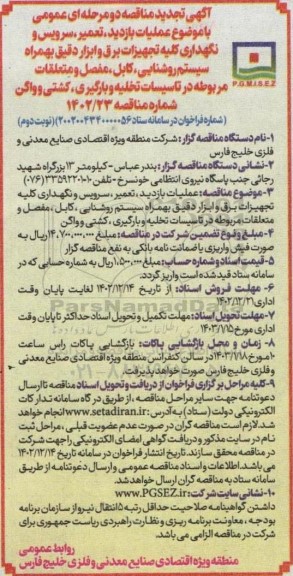 آگهی تجدید مناقصه دو مرحله ای عمومی
با موضوع عملیات بازدید، تعمیر، سرویس و
نگهداری کلیه تجهیزات برق و ابزار دقیق بهمراه
سیستم روشنایی، کابل، مفصل و متعلقات
مربوطه در تاسیسات تخلیه و بارگیری، کشتی و واگن
شماره مناقصه ۱۴۰۲/۲۳
P.G.M.I.S.E.Z
(شماره فراخوان در سامانه ستاد ۲۰۰۲۰۰۴۳۴۰۰۰۰۰۵۶) (نوبت دوم)
۱- نام دستگاه مناقصه گزار: شرکت منطقه ویژه اقتصادی صنایع معدنی و
فلزی خلیج فارس
۲- نشانی دستگاه مناقصه گزار: بندر عباس - کیلومتر ۱۳ بزرگراه شهید
رجائی جنب پاسگاه نیروی انتظامی خونسرخ - تلفن
۳- موضوع مناقصه: عملیات بازدید، تعمیر، سرویس و نگهداری کلیه
تجهیزات برق و ابزار دقیق بهمراه سیستم روشنایی، کابل، مفصل و
متعلقات مربوطه در تاسیسات تخلیه و بارگیری، کشتی و واگن
۴- مبلغ و نوع تضمین شرکت در مناقصه: مبلغ ۱۴,۷۰۰,۰۰۰,۰۰۰ ریال به
صورت فیش واریزی یا ضمانت نامه بانکی به نفع مناقصه گزار
۵- قیمت اسناد و شماره حساب: مبلغ ۱,۵۰۰,۰۰۰ ریال به شماره حسابی که در
سامانه ستاد قید شده است واریز گردد.
۶- مهلت فروش اسناد: از تاریخ ۱۴۰۲/۱۲/۱۴ لغایت پایان وقت
اداری ۱۴۰۲/۱۲/۲۱
۷- مهلت تحویل اسناد: مهلت تکمیل و تحویل اسناد حداکثر تا پایان وقت
اداری مورخ ۱۴۰۳/۱/۱۵
۸- زمان و محل بازگشایی پاکات: بازگشایی پاکات راس ساعت
۱۰ مورخ ۱۴۰۳/۱/۱۸ در سالن کنفرانس منطقه ویژه اقتصادی صنایع معدنی
و فلزی خلیج فارس صورت خواهد پذیرفت.
۹- کلیه مراحل برگزاری فراخوان از دریافت و تحویل اسناد مناقصه تا ارسال
دعوتنامه جهت سایر مراحل مناقصه، از طریق درگاه سامانه تدارکات
الکترونیکی دولت (ستاد) به آدرس: www.setadiran.ir انجام خواهد
شد. لازم است مناقصه گران در صورت عدم عضویت قبلی، مراحل ثبت
نام در سایت مذکور و دریافت گواهی امضای الکترونیکی را جهت شرکت
در مناقصه محقق سازند. تاریخ انتشار فراخوان در سامانه تاریخ ۱۴۰۲/۱۲/۱۴
می باشد. اطلاعات و اسناد مناقصه عمومی و ارسال دعوتنامه از طریق
سامانه ستاد به مناقصه گران ارسال خواهد شد.
۱۰- نشانی سایت شرکت: www.PGSEZ.ir
داشتن گواهینامه صلاحیت حداقل رتبه ۵ انتقال نیرو از سازمان برنامه
بودجه، معاونت برنامه ریزی و نظارت راهبردی ریاست جمهوری برای
شرکت در مناقصه الزامی می باشد.
روابط عمومی
منطقه ویژه اقتصادی صنایع معدنی و فلزی خلیج فارس